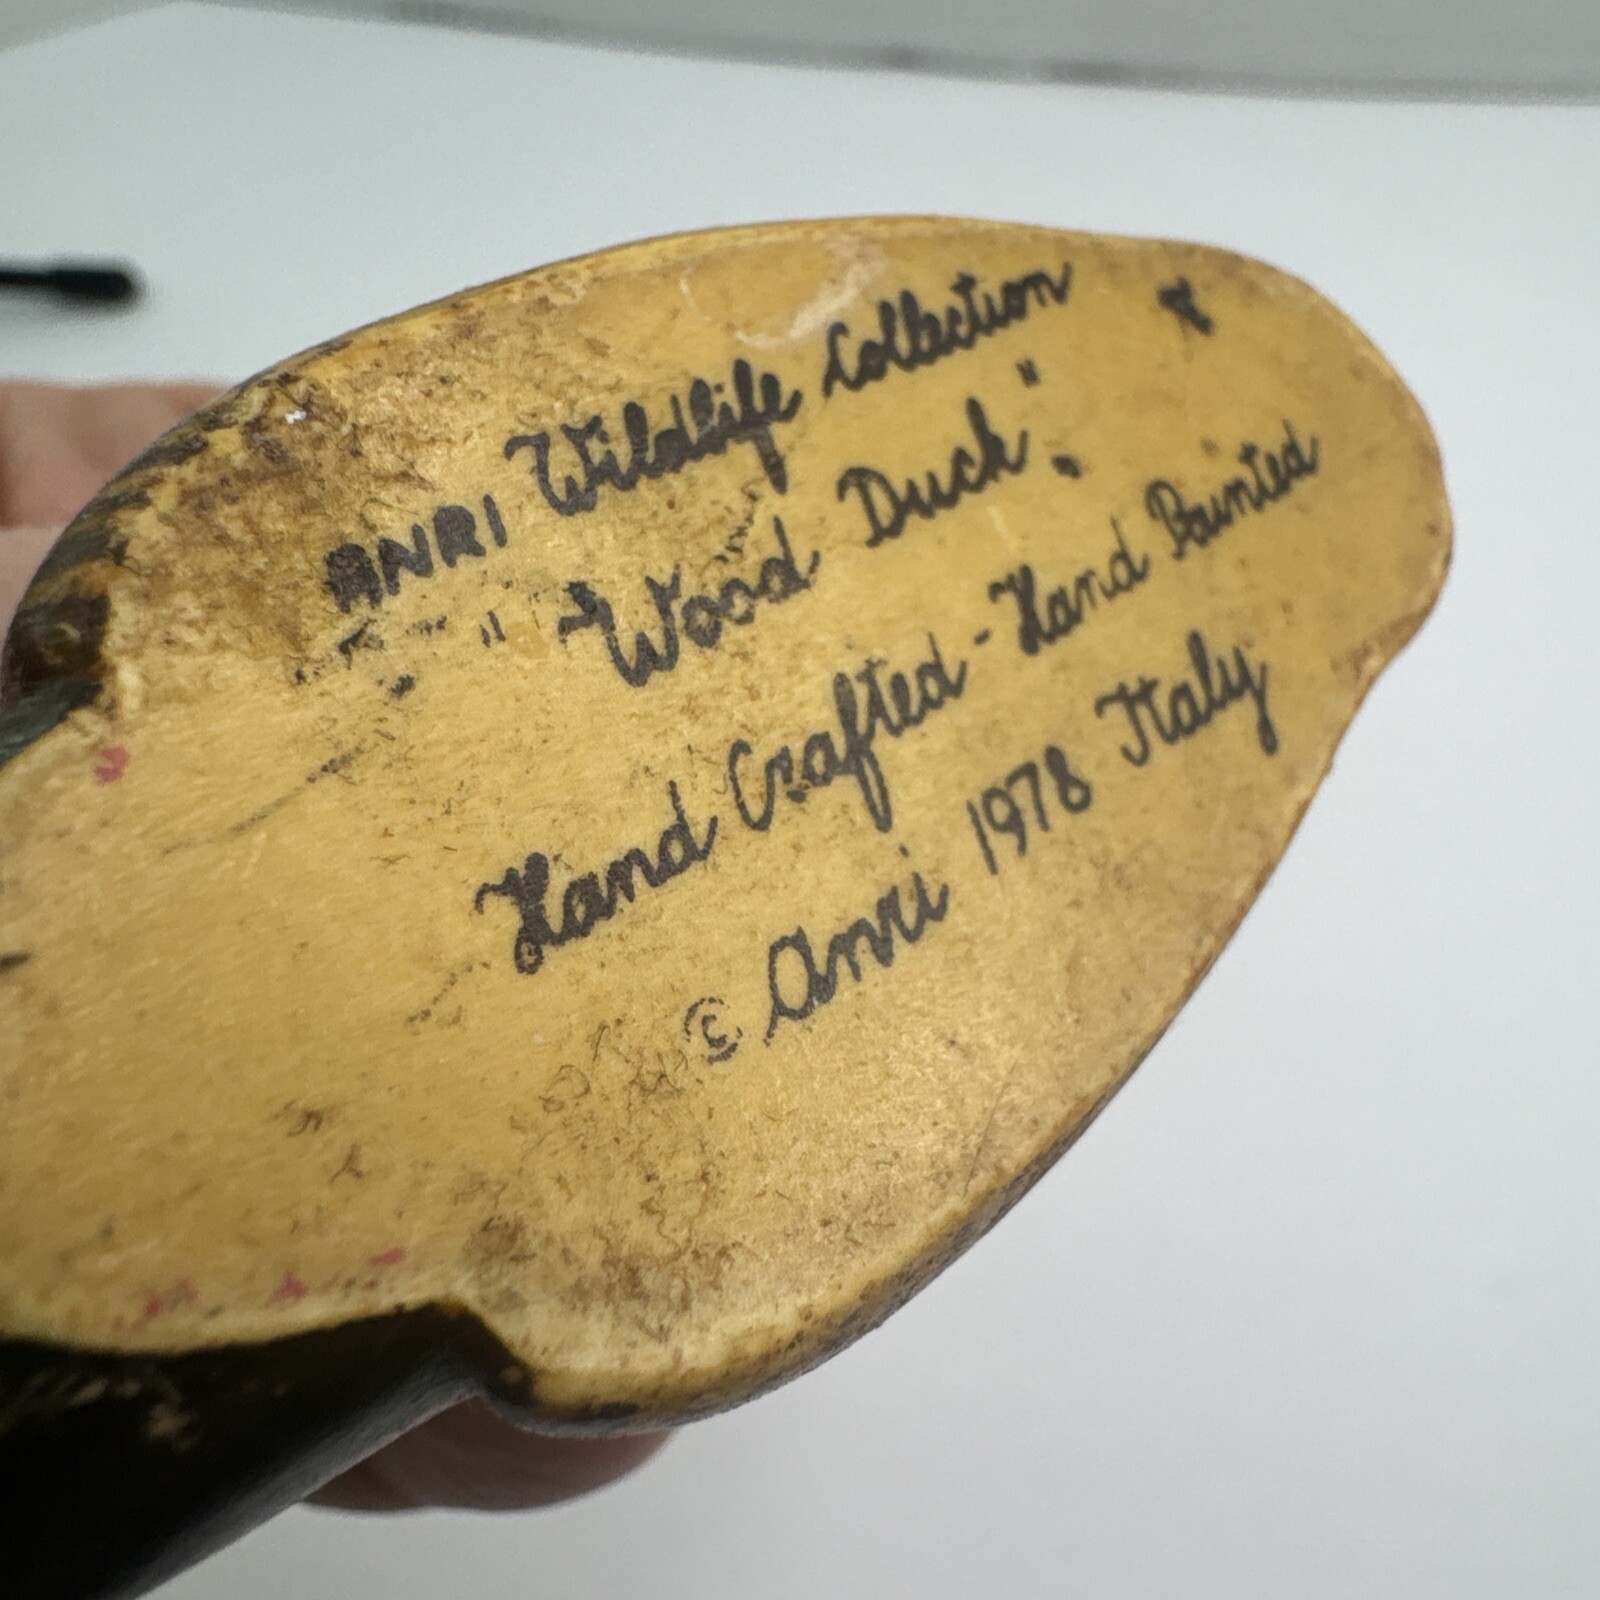 ANRI Wildlife Collection
"Wood Duck"
Hand Crafted - Hand Painted
© Anri 1978 Italy